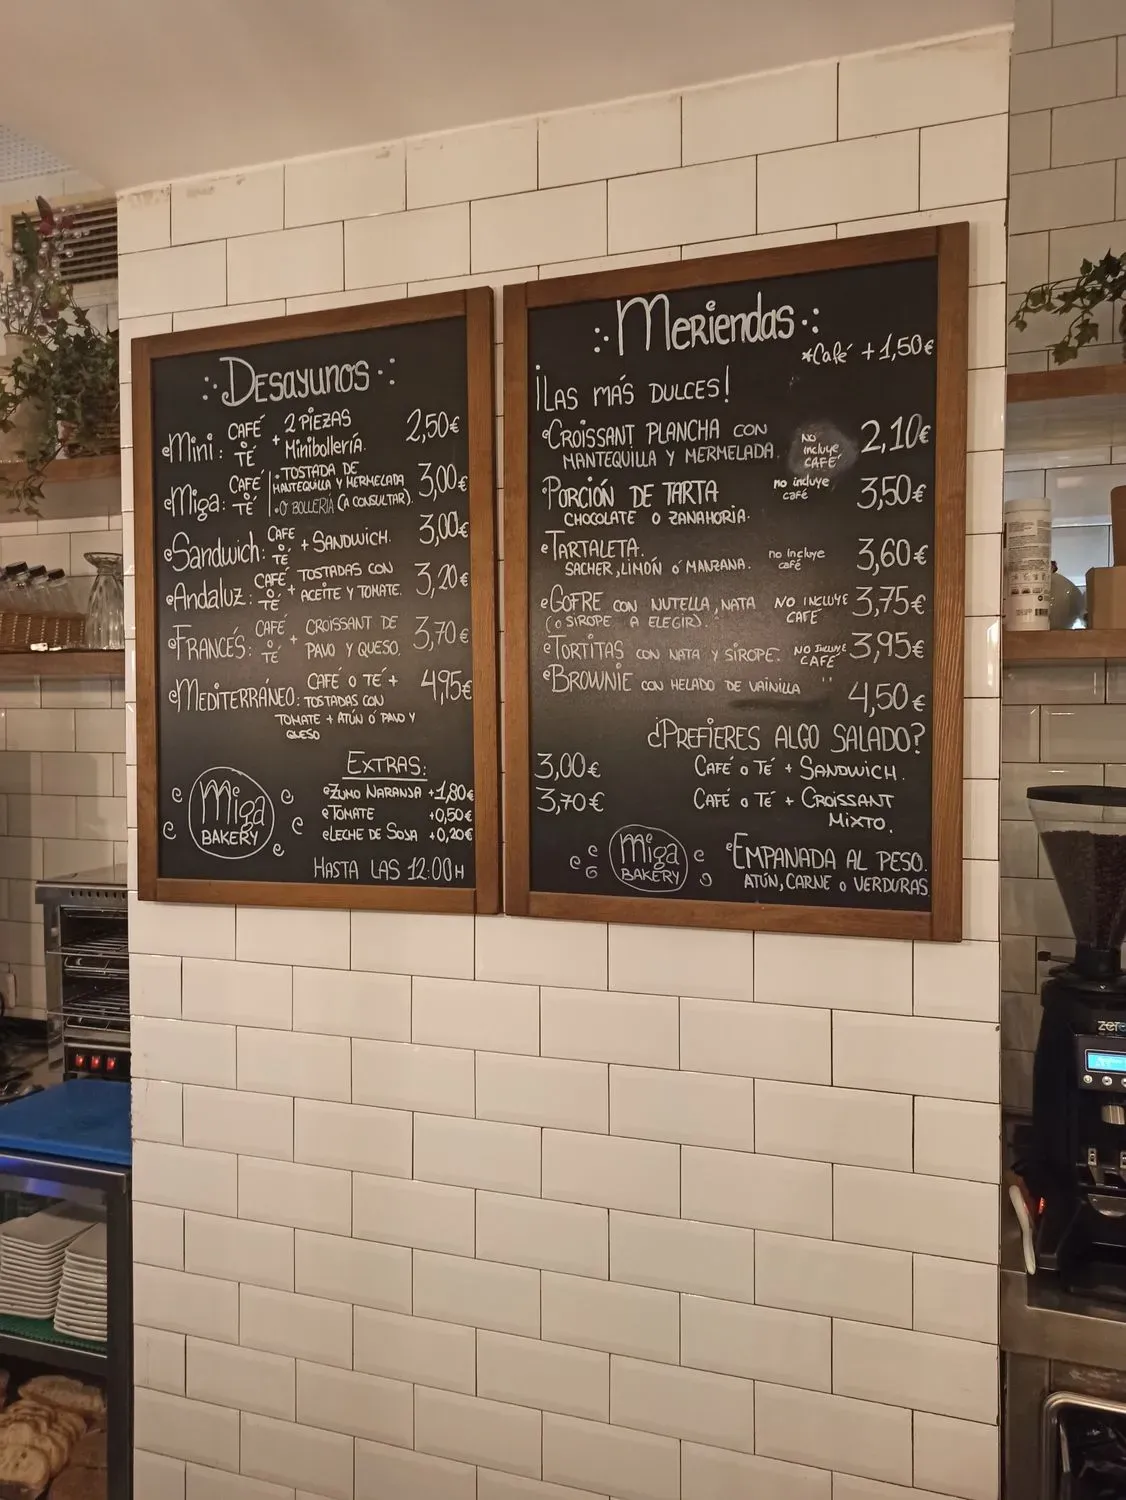 Desayunos
Mini: CAFÉ Ó TÉ + 2 PIEZAS Minibollería. 2,50€
Miga: CAFÉ Ó TÉ · TOSTADA DE MANTEQUILLA Y MERMELADA 3,00€
· O BOLLERÍA (A CONSULTAR).
Sandwich: CAFE Ó TÉ + SANDWICH. 3,00€
Andaluz: CAFÉ Ó TÉ + TOSTADAS CON ACEITE Y TOMATE. 3,20€
FRANCÉS: CAFÉ Ó TÉ + CROISSANT DE PAVO Y QUESO. 3,70€
MEDITERRÁNEO: CAFÉ O TÉ + 4,95€
TOSTADAS CON
TOMATE + ATÚN Ó PAVO Y
QUESO
EXTRAS:
ZUMO NARANJA +1,80€
TOMATE +0,50€
LECHE DE SOJA +0,20€
Miga
BAKERY
HASTA LAS 12:00H
MERIENDAS
*Café +1,50€
¡LAS MÁS DULCES!
CROISSANT PLANCHA CON
MANTEQUILLA Y MERMELADA. NO incluye CAFÉ 2,10€
PORCIÓN DE TARTA no incluye café 3,50€
CHOCOLATE O ZANAHORIA.
TARTALETA. no incluye café 3,60€
SACHER, LIMÓN Ó MANZANA.
GOFRE CON NUTELLA, NATA NO INCLUYE CAFE 3,75€
(O SIROPE A ELEGIR).
TORTITAS CON NATA Y SIROPE. NO INCLUYE CAFÉ 3,95€
BROWNIE CON HELADO DE VAINILLA " 4,50€
¿PREFIERES ALGO SALADO?
3,00€ CAFÉ O TÉ + SANDWICH.
3,70€ CAFÉ O TÉ + CROISSANT
MIXTO.
Miga
BAKERY
EMPANADA AL PESO.
ATÚN, CARNE O VERDURAS